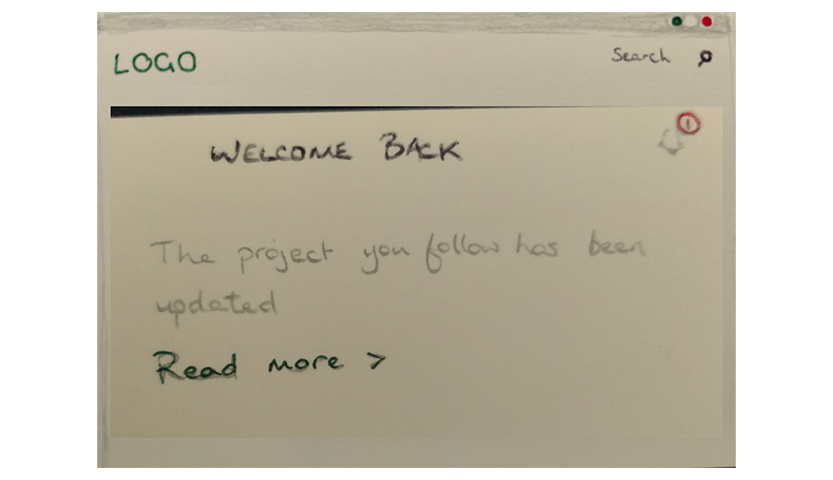 LOGO
Search
1
WELCOME BACK
The project you follow has been
updated
Read more >